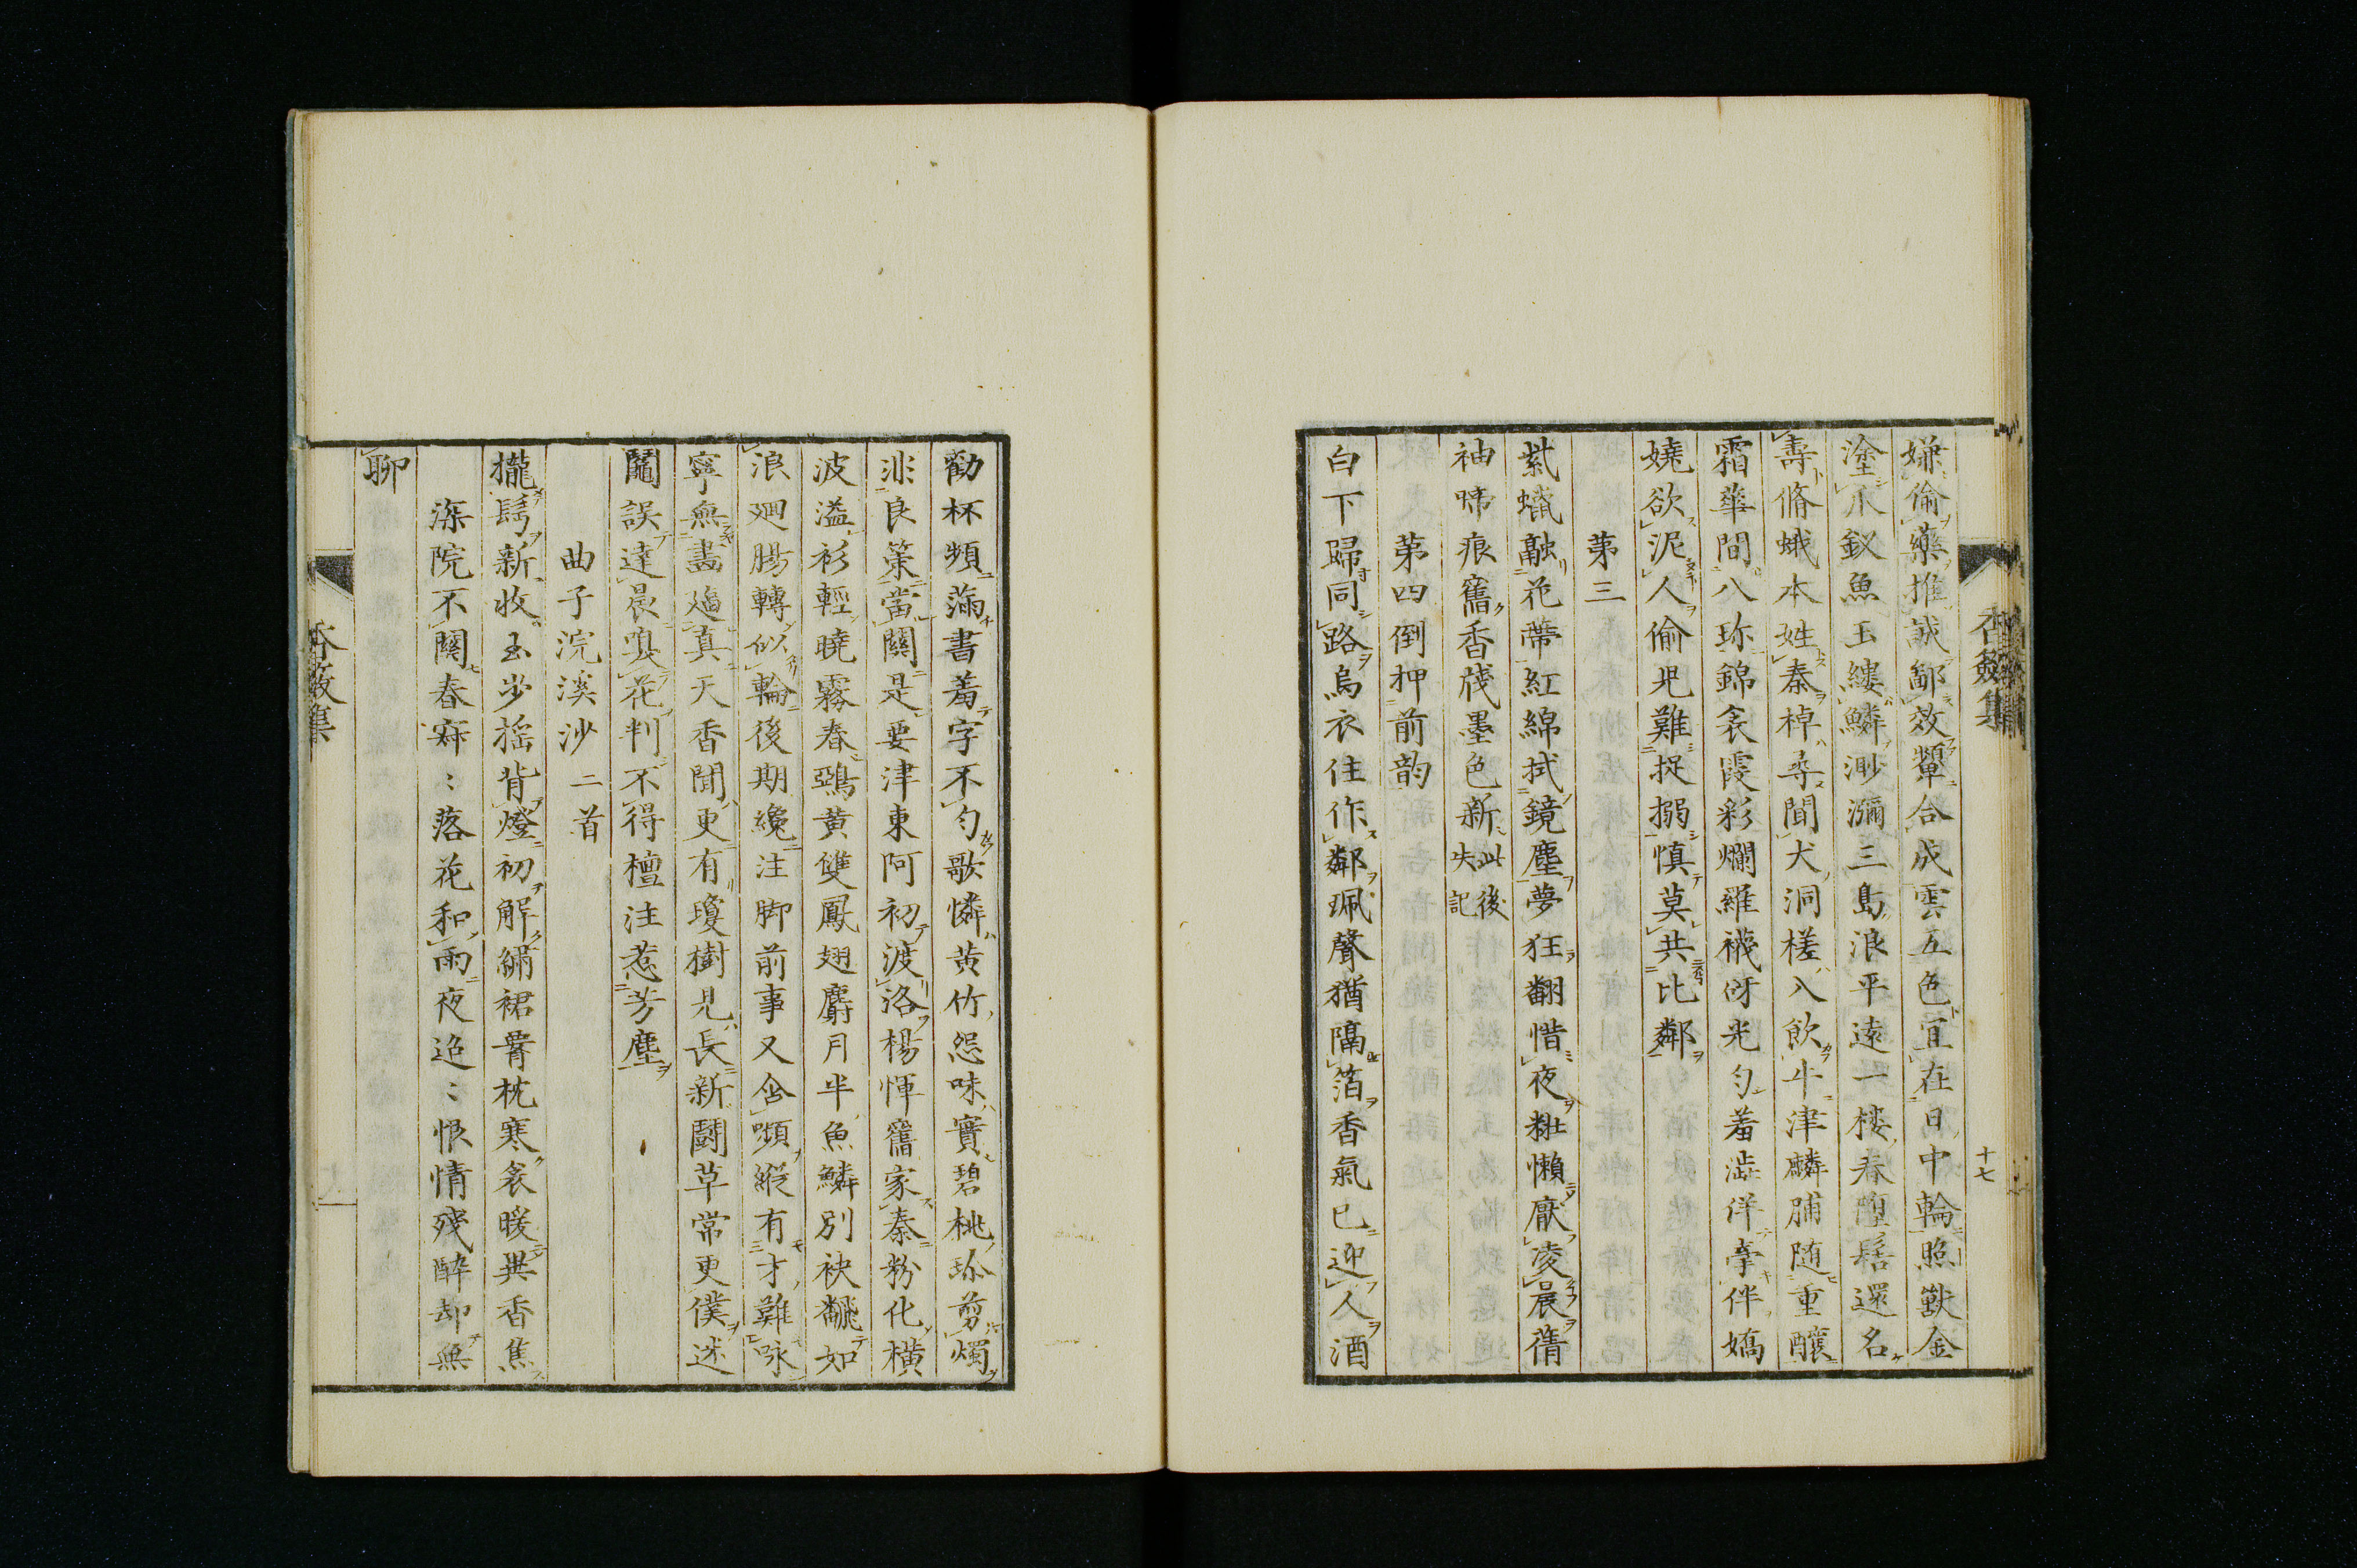 嫌偷藥推誠鄙效顰合成雲五色宜在日中輪照獸金
塗爪釵魚玉縷鱗渺瀰三島浪平遠一樓春墮髻還名
壽脩蛾本姓秦棹尋聞犬洞槎入飲牛津麟脯隨重釀
霜華間八珍錦衾霞彩爛羅襪砑光勻羞澀佯牽伴嬌
嬈欲泥人偷兒難捉搦慎莫共比鄰
第三
紫蠟融花蔕紅綿拭鏡塵夢狂翻惜夜粧懶厭凌晨蒨
袖啼痕舊香牋墨色新此後失記
第四倒押前韵
白下歸同路烏衣住作鄰珮聲猶隔箔香氣已迎人酒
香奩集
十七
勸杯頻滿書羞字不勻歌憐黃竹怨味實碧桃珍剪燭
非良策當關是要津東阿初渡洛楊惲舊家秦粉化橫
波溢衫輕曉霧春鵶黃雙鳳翅麝月半魚鱗別袂翻如
浪廻腸轉似輪後期纔注脚前事又含嚬縱有才難咏
寧無畫逼真天香聞更有瓊樹見長新鬪草常更僕迷
鬮誤達晨嗅花判不得檀注惹芳塵
曲子浣溪沙 二首
攏鬢新收玉步搖背燈初解繡裙腰枕寒衾暖異香焦
深院不關春寂:落花和雨夜迢:恨情殘醉却無
聊
香奩集